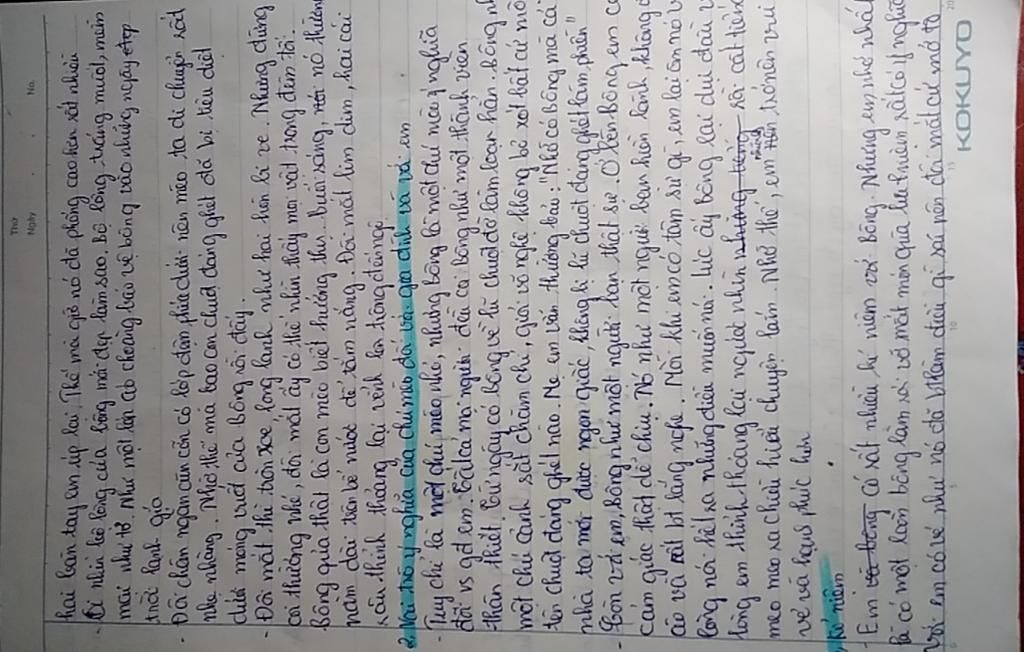 Thứ
Ngày
No.
hai bàn tay em úp lại. Thế mà giờ nó đã phổng cao hơn rất nhiều
- Cái nhìn bộ lông của bông mới đẹp làm sao. Bộ lông trắng muốt, mềm
mại như tơ. Như một lần áo choàng bảo vệ bông vào những ngày đẹp
trời lạnh giá
- Đôi chân ngắn cũn còn có lớp đệm phía dưới nên mèo ta di chuyển rất
nhẹ nhàng. Nhờ thế mà bao con chuột đáng ghét đã bị tiêu diệt
dưới móng vuốt của bông rồi đấy.
- Đôi mắt thì tròn xoe long lanh như hai hòn bi ve. Nhưng đừng
coi thường nhé, đôi mắt ấy có thể nhìn thấy mọi vật trong đêm tối.
Bông quả thật là con mèo biết hưởng thụ. buổi sáng, nó thường
nằm dài trên bể nước để tắm nắng. Đôi mắt lim dim, hai cái
râu thỉnh thoảng lại vểnh lên trông đáng
2. Vai trò ý nghĩa của chú mèo đối với gia đình và với em
- Tuy chỉ là một chú mèo nhỏ, nhưng bông là một chú mèo ý nghĩa
đối vs gđ em. Tất cả mọi người đều coi bông như một thành viên
thân thiết. Từ ngày có bông về lũ chuột đỡ làm loạn hẳn. bông như
một chú cảnh sát chăm chỉ, già về nghề không bỏ xót bất cứ một
tên chuột đáng ghét nào. Mẹ em vẫn thường bảo: "Nhờ có bông mà cả
nhà ta mới được ngon giấc, không bị lũ chuột đáng ghét làm phiền"
- Còn với em, bông như một người bạn thật sự. Ở bên bông em có
cảm giác thật dễ chịu. Nó như một người bạn hiền lành, không ồn
ào và biết lắng nghe. Mỗi khi em có tâm sự gì, em lại ôm nó vào
lòng nói hết ra những điều muốn nói. Lúc ấy bông lại dụi đầu vào
lòng em thỉnh thoảng lại ngước nhìn rồi cất tiếng
meo meo ra chiều hiểu chuyện lắm. Nhờ thế, em trở nên vui
vẻ và hạnh phúc hơn
kỉ niệm
- Em có rất nhiều kỉ niệm với bông. Nhưng em nhớ nhất
là có một lần bông làm rơi vỡ một món quà lưu niệm rất có ý nghĩa
với em có vẻ như nó đã biết làm điều gì sai nên đôi mắt cứ mở to
KOKUYO